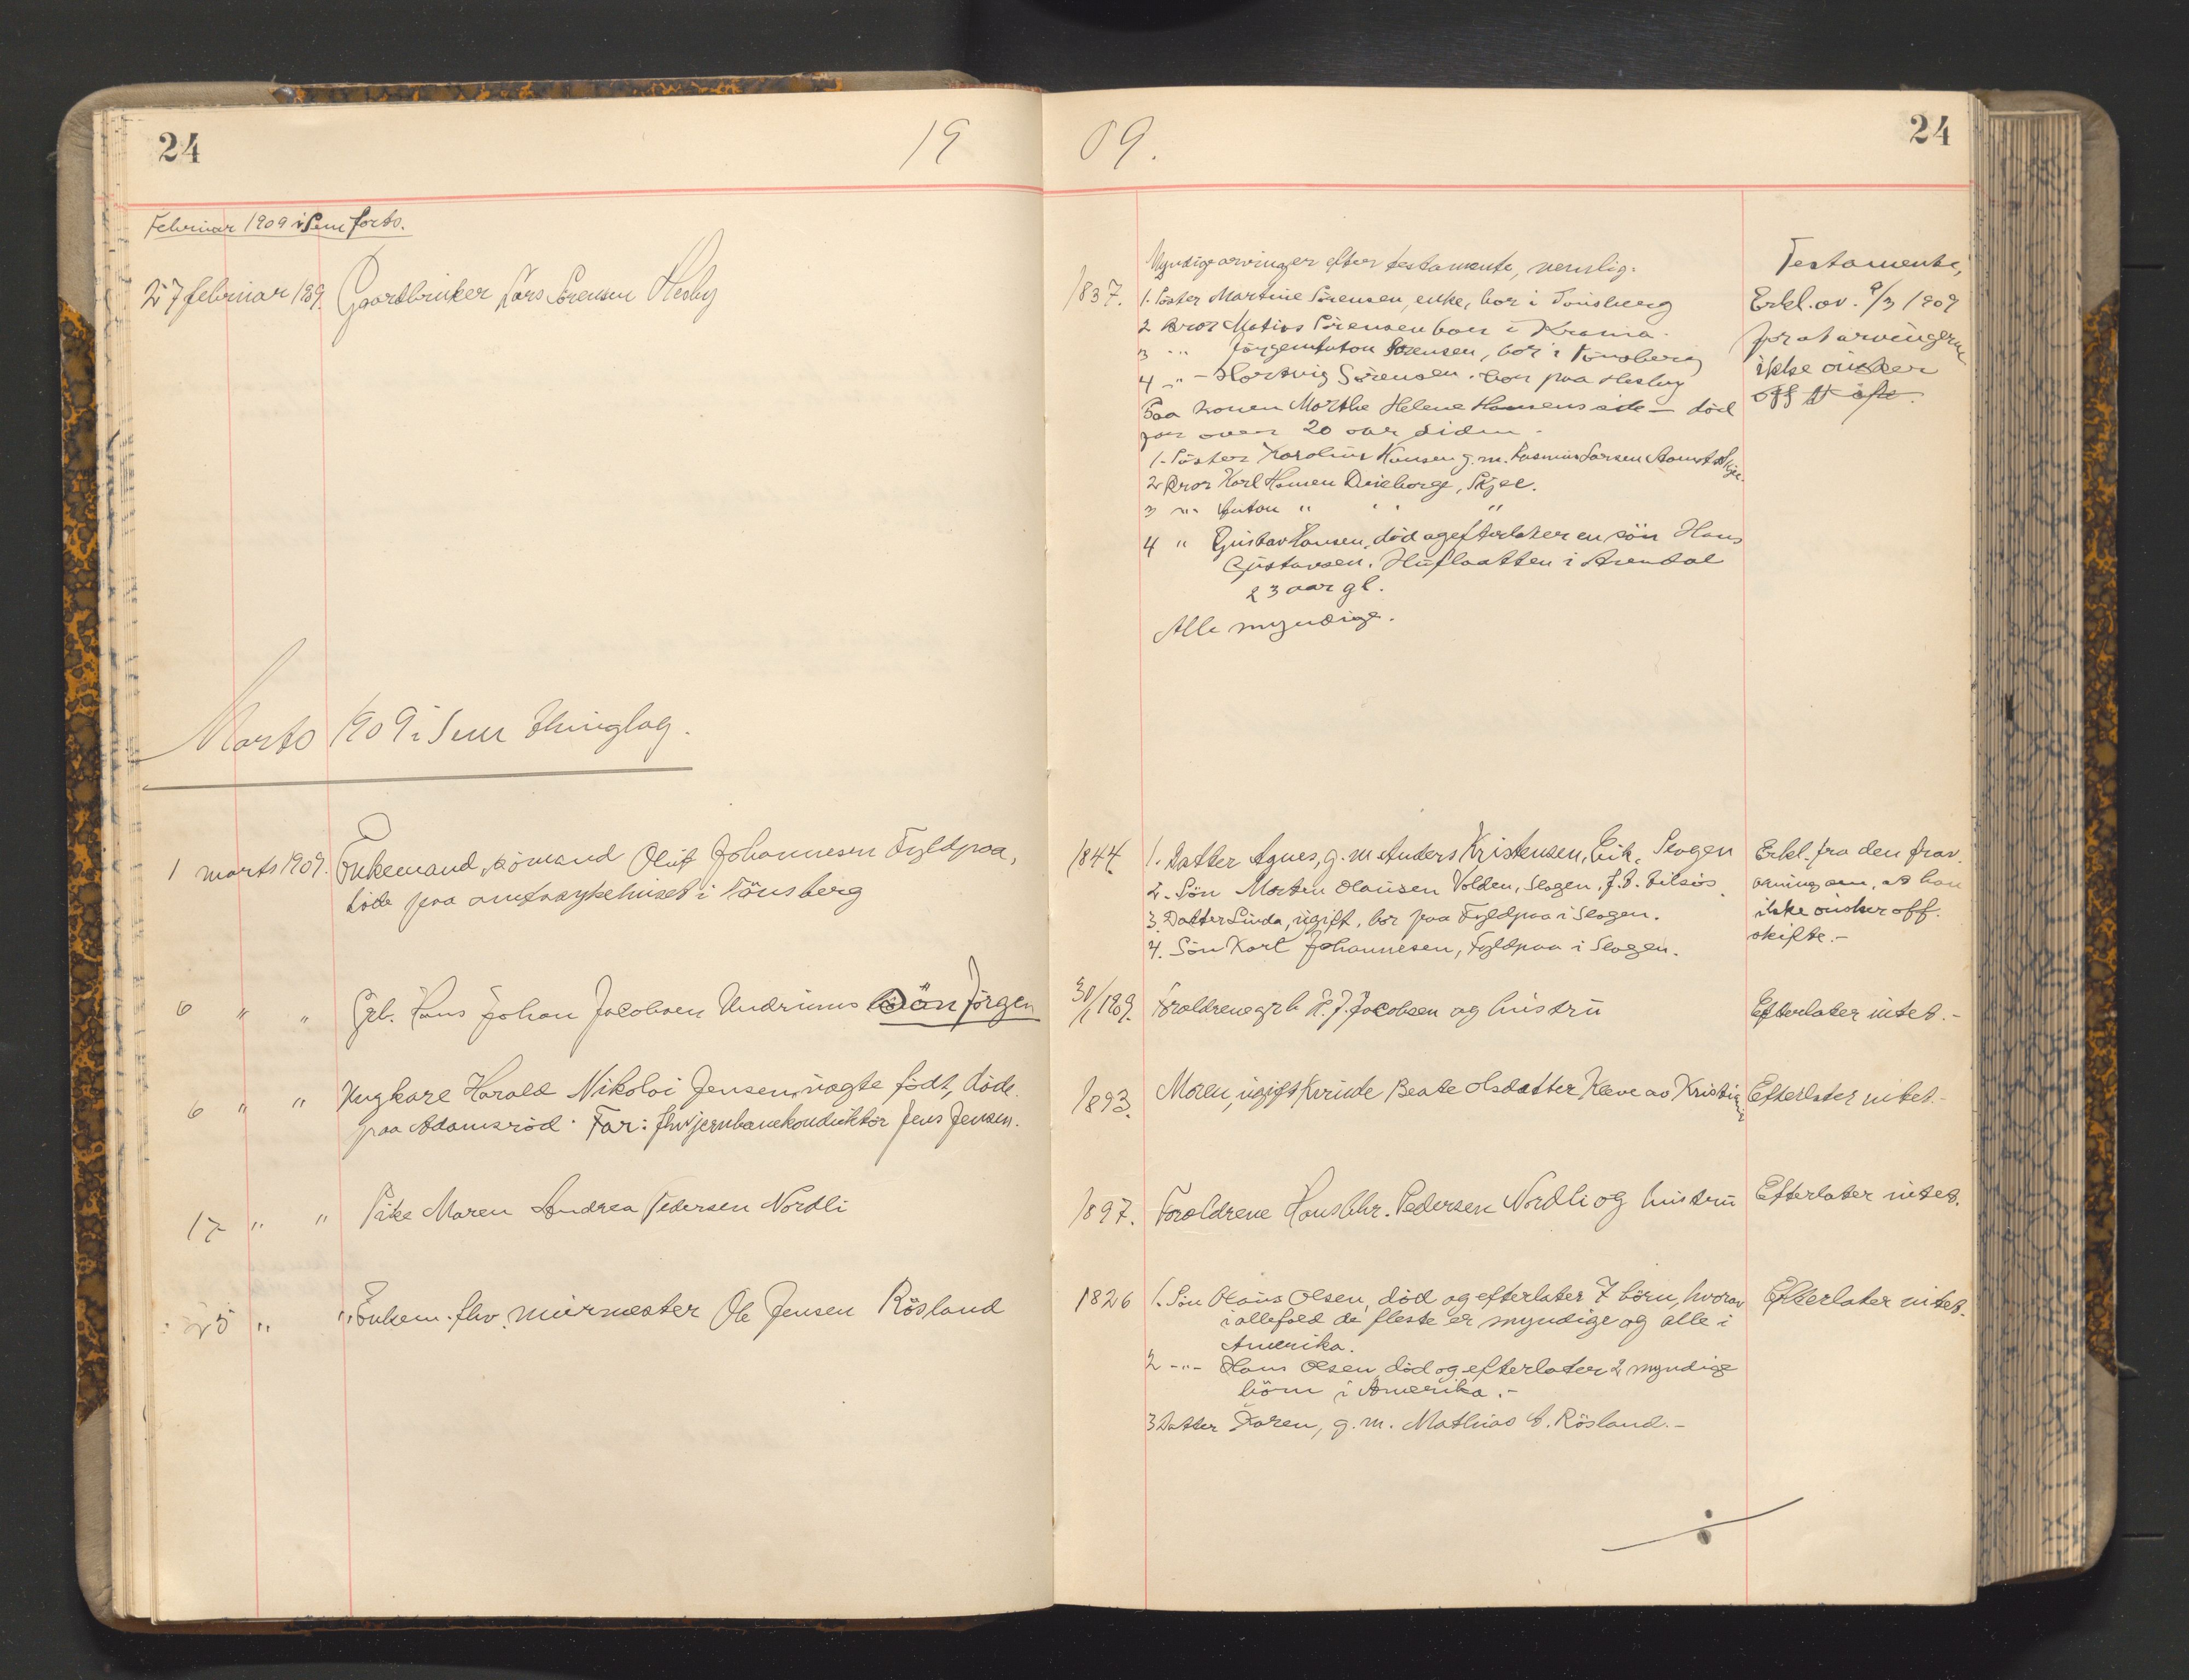 24
19
09.
24
Februar 1909 i Sem forts.
27 februar 1909. Gaardbruker Lars Sörensen Hesby
1837.
Myndige arvinger efter testamente, nemlig:
1. Söster Martine Sörensen, enke, bor i Tönsberg
2 Bror Matias Sörensen bor i Krania.
3 -"- Jörgen Anton Sörensen, bor i Tönsberg
4 -"- Hartvig Sörensen. bor paa Hesby
Paa konen Marthe Helene Hansens side - död
for over 20 aar siden.
1. Söster Karoline Hansen g. m. Rasmus Larsen
2 Bror Karl Hansen Dueborge, Skjee.
3 -"- Anton " " "
4 " Gustav Hansen, död og efterlater en sön Hans
Gustavsen. i Arendal
23 aar gl.
Alle myndige.
Testamente,
Erkl. av. 9/3 1909
for at arvingerne
ikke önsker
off skifte.
Marts 1909 i Sem Thinglag.
1 marts 1909. Enkemand, sömand Oluf Johannesen Fyldpaa,
döde paa amtssykehuset i Tönsberg
1844.
1. Datter Agnes, g. m Anders Kristensen, Eik, Slagen
2. Sön Morten Olausen Volden, Slagen, f. t. tilsjös.
3. Datter Linda, ugift, bor paa Fyldpaa i Slagen.
4. Sön Karl Johannesen, Fyldpaa i Slagen.
Erkl. fra den
om, at han
ikke önsker off.
skifte.-
6 " " Grb. Hans Johan Jacobsen Undrums Sön Jörgen
30/1 1909. Foraldrene grb H. J. Jacobsen og hustru
Efterlater intet.-
6 " " Ungkare Harald Nikolai Jensen, uægte födt, döde
paa Adamsröd. Far: fhv jernbanekonduktör Jens Jensen.
1893.
Moren, ugift kvinde Beate Olsdatter Kleve av Kristiania
Efterlater intet.-
17 " " Pike Maren Andrea Pedersen Nordli
1897.
Foraldrene Hans Chr. Pedersen Nordli og hustru
Efterlater intet.
25 " " Enkem. fhv. murmester Ole Jensen Rösland
1826
1. Sön Olaus Olsen, död og efterlater 7 börn, hvorav
iallefald de fleste er myndige og alle i
Amerika.
2 -"- Hans Olsen död og efterlater 2 myndige
börn i Amerika.-
3 Datter Karen, g. m. Mathias A. Rösland.-
Efterlater intet.